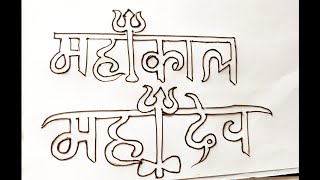 महाकाल
महादेव